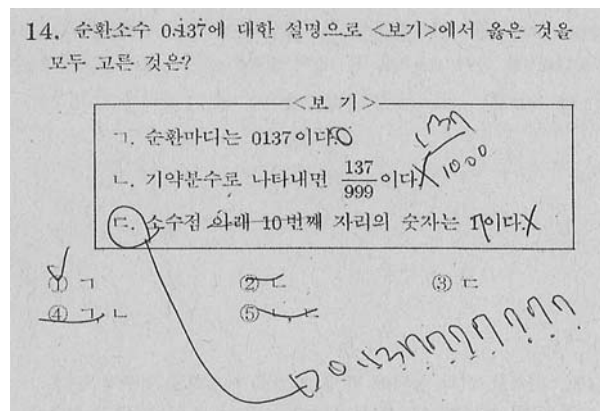 14. 순환소수 0.1̇37̇에 대한 설명으로 <보기>에서 옳은 것을
모두 고른 것은?
<보 기>
ㄱ. 순환마디는 0137이다. O
ㄴ. 기약분수로 나타내면 137/999이다. X 137/1000
ㄷ. 소수점 아래 10번째 자리의 숫자는 이다. X
① ㄱ ② ㄴ ③ ㄷ
④ ㄱ, ㄴ ⑤ ㄴ, ㄷ